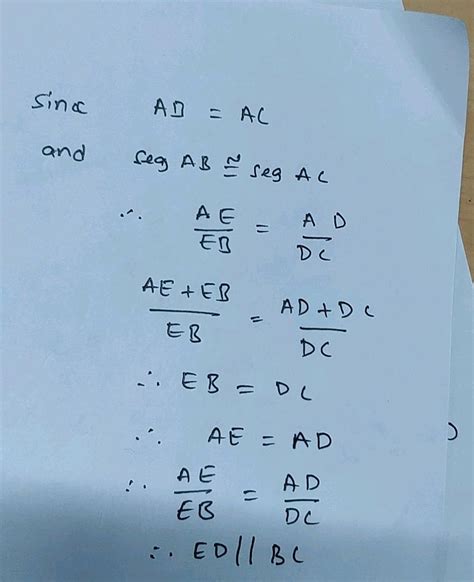 since AB = AC
and seg AB ≅ seg AC
∴ AE/EB = AD/DC
AE+EB/EB = AD+DC/DC
∴ EB = DC
∴ AE = AD
∴ AE/EB = AD/DC
∴ ED || BC